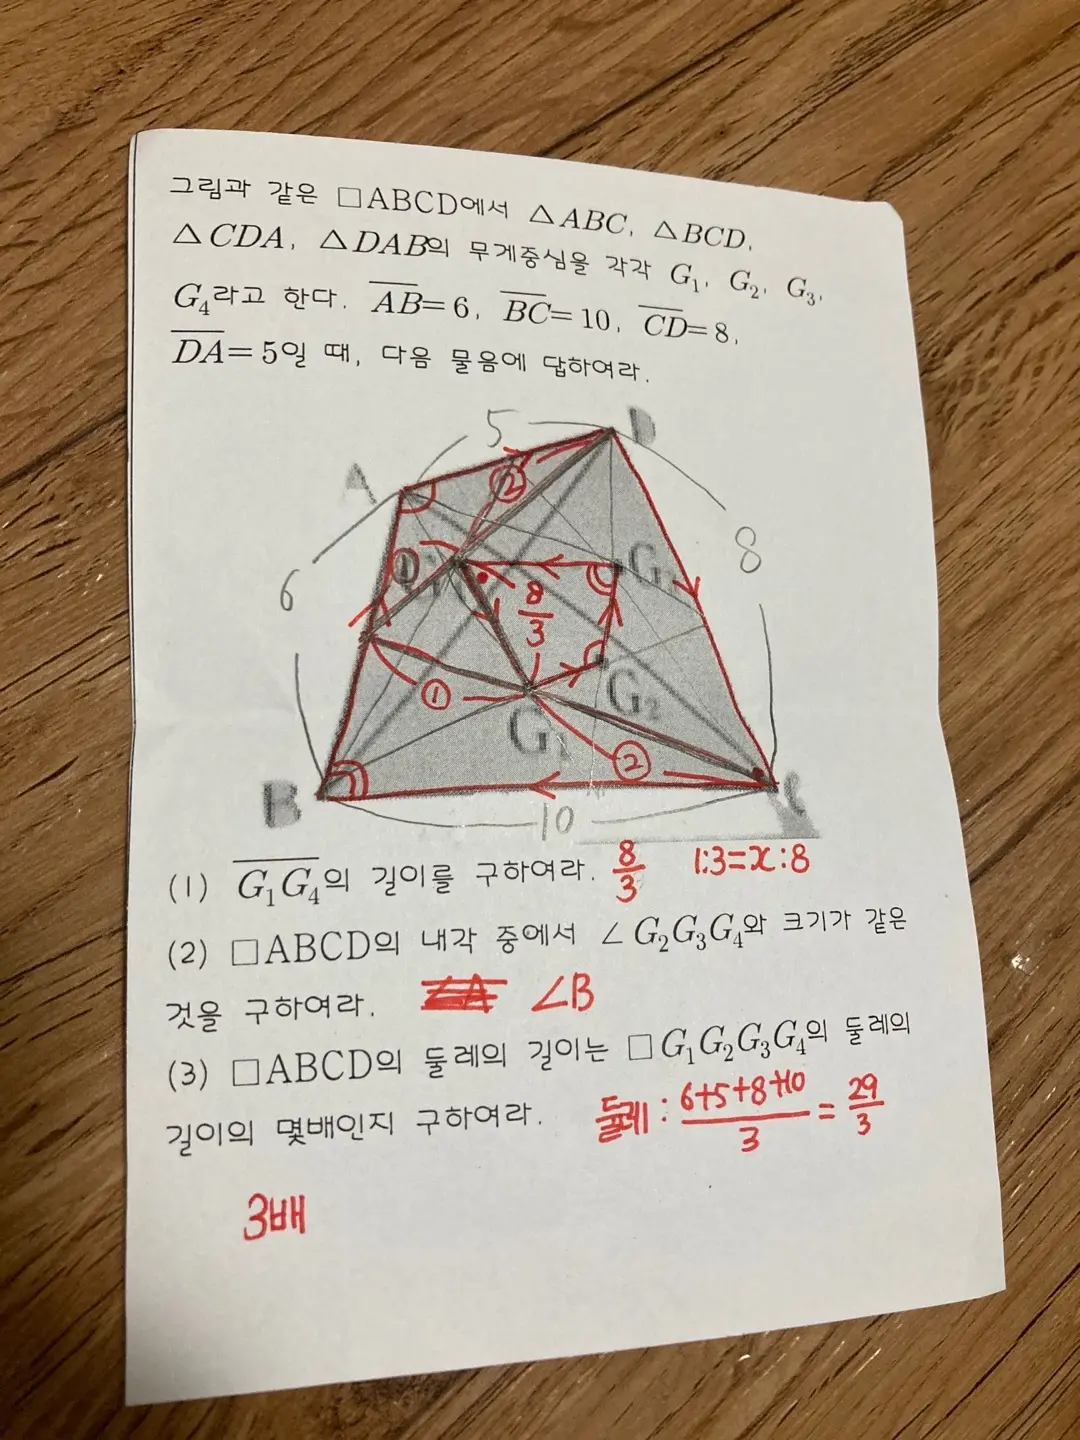 그림과 같은 □ABCD에서 △ABC, △BCD,
△CDA, △DAB의 무게중심을 각각 G₁, G₂, G₃,
G₄라고 한다. A̅B̅=6, B̅C̅=10, C̅D̅=8,
D̅A̅=5일 때, 다음 물음에 답하여라.
5
D
A
②
8
6
8/3
①
G₂
G₁
②
B
C
10
(1) G̅₁G̅₄의 길이를 구하여라. 8/3 1:3=x:8
(2) □ABCD의 내각 중에서 ∠G₂G₃G₄와 크기가 같은
것을 구하여라. ∠A ∠B
(3) □ABCD의 둘레의 길이는 □G₁G₂G₃G₄의 둘레의
길이의 몇배인지 구하여라. 둘레: (6+5+8+10)/3 = 29/3
3배